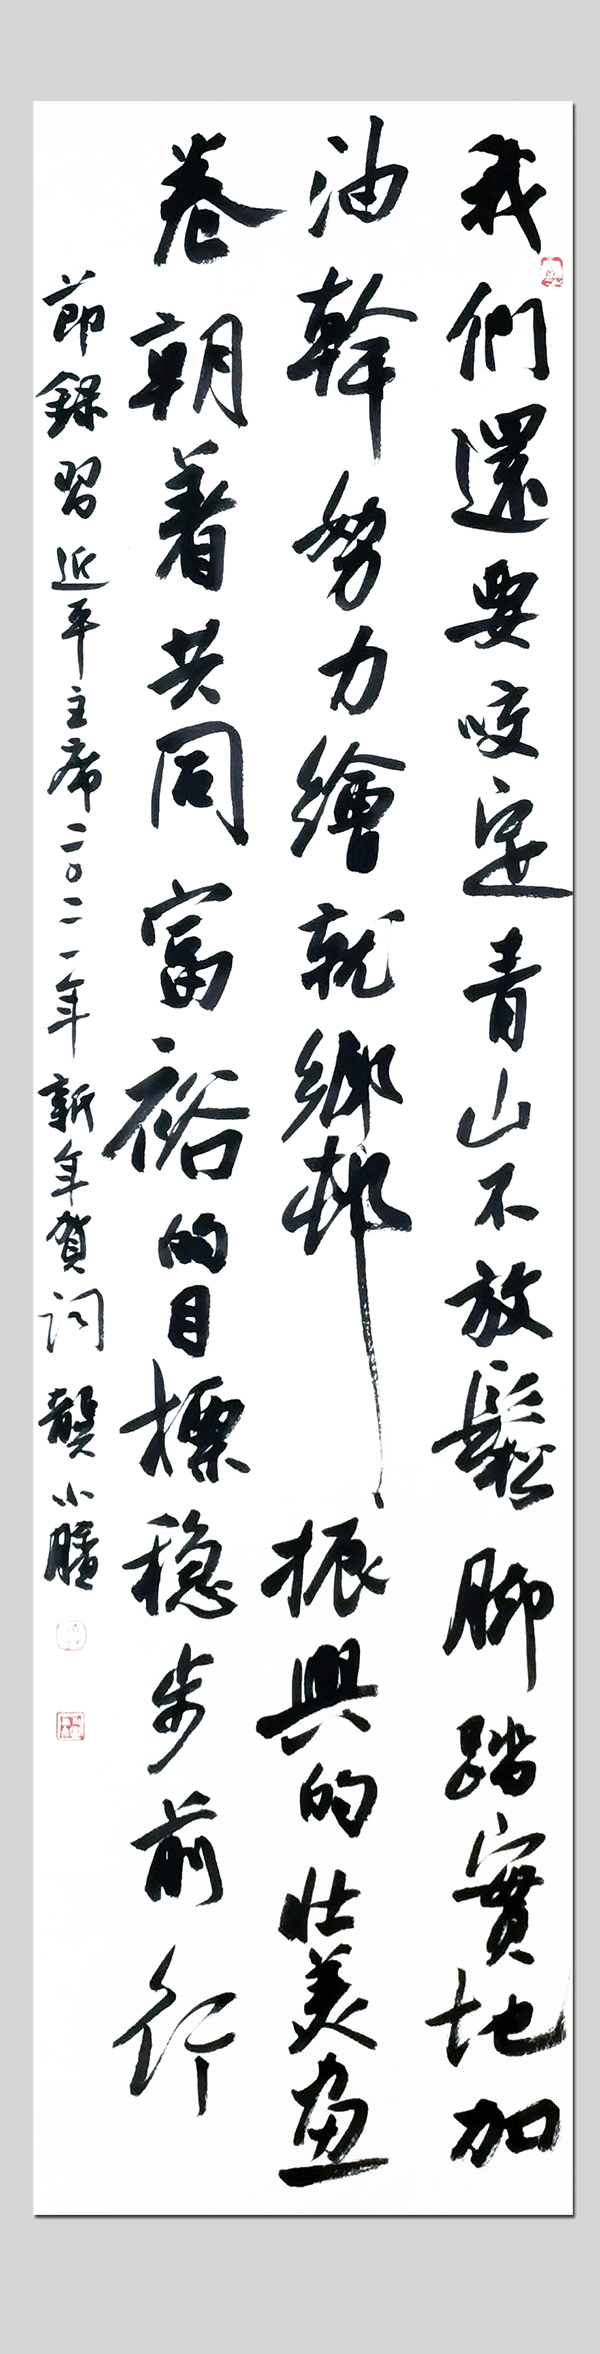 我們還要咬定青山不放鬆脚踏實地加
油幹努力繪就鄉邨振興的壯美畫
卷朝着共同富裕的目標穩步前行
節錄習近平主席二〇二一年新年賀詞 龔小